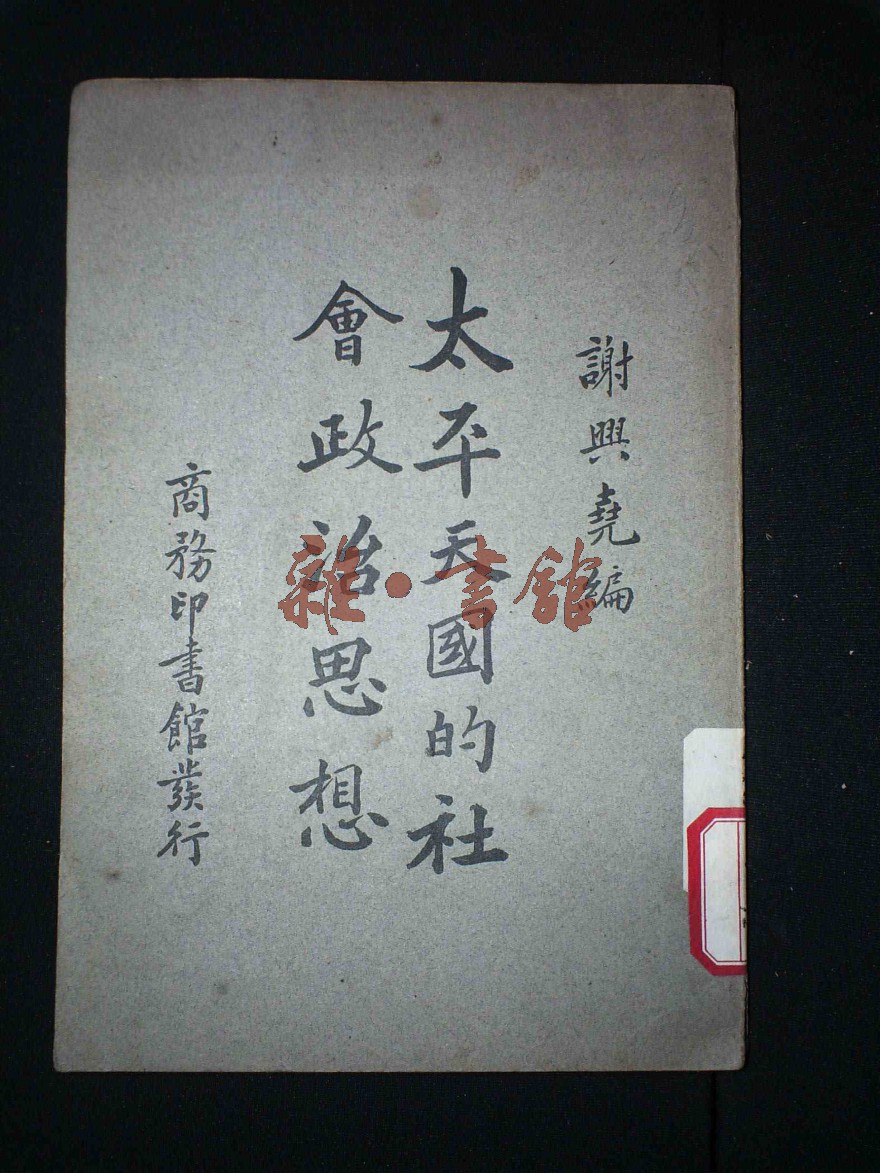 謝興堯編
太平天國的社
會政治思想
商務印書館發行
雜·書館